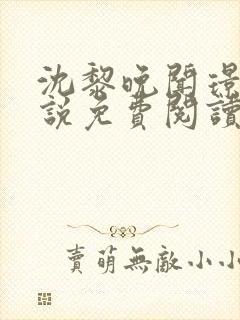 沈黎晚聞璟
說免費閱讀
賣萌無敵小小